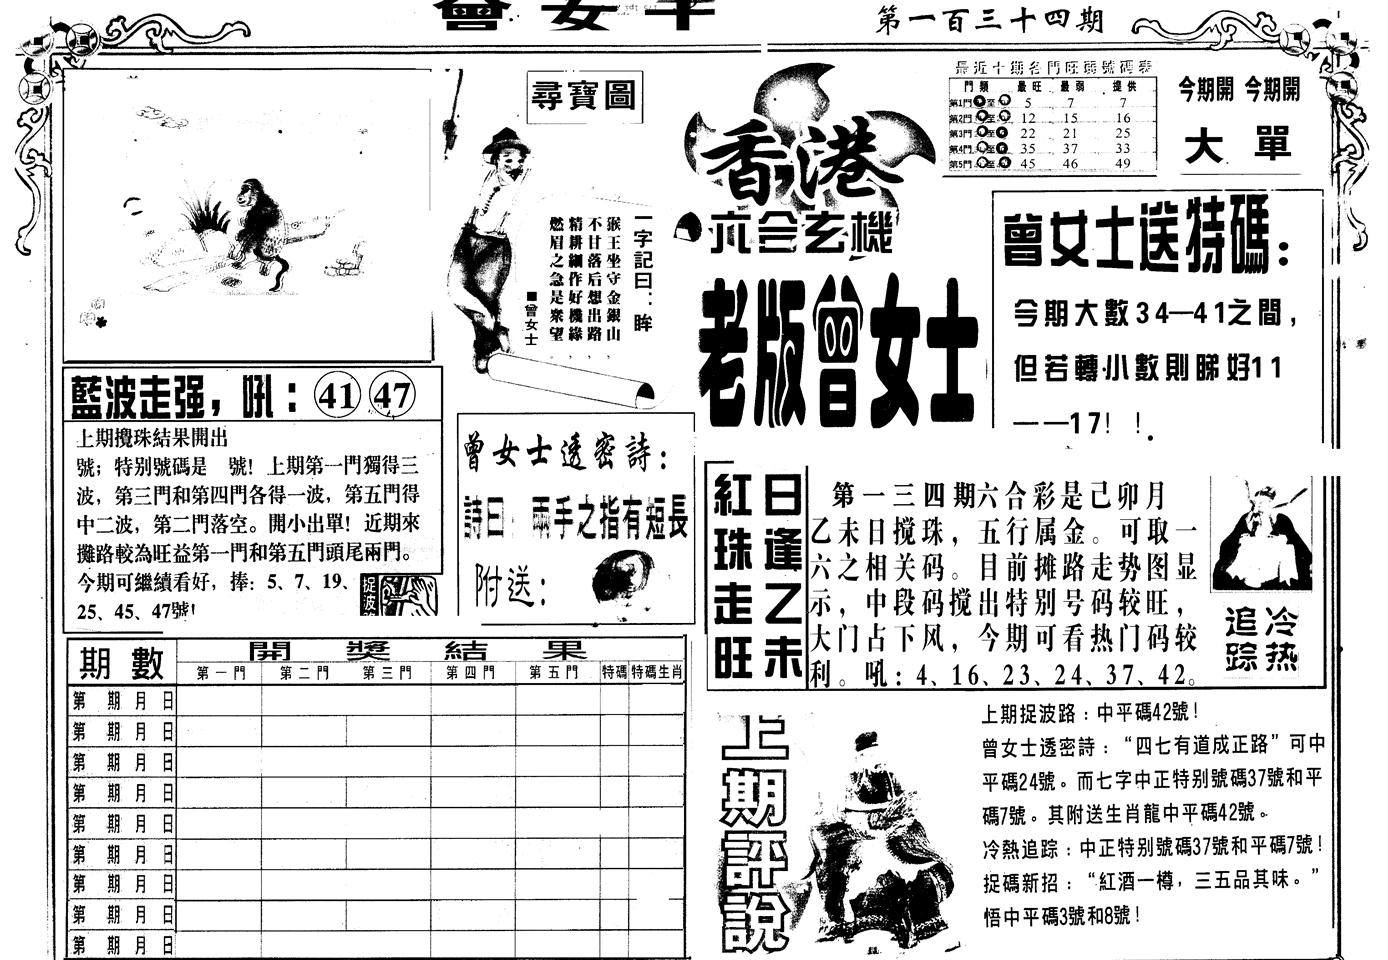 曾女士
第一百三十四期
尋寶圖
一字記曰：眸
猴王坐守金銀山
不甘落后想出路
精耕細作好機緣
燃眉之急是衆望
■曾女士
香港
六合玄機
老版曾女士
最近十期各門旺弱號碼表
門類 最旺 最弱 提供
第1門 至 5 7 7
第2門 至 12 15 16
第3門 至 22 21 25
第4門 至 35 37 33
第5門 至 45 46 49
今期開 今期開
大 單
曾女士送特碼：
今期大數34—41之間，
但若轉小數則睇好11
——17！！
藍波走强，吼：41 47
上期攪珠結果開出
號；特别號碼是 號！上期第一門獨得三
波，第三門和第四門各得一波，第五門得
中二波，第二門落空。開小出單！近期來
攤路較為旺益第一門和第五門頭尾兩門。
今期可繼續看好，捧：5、7、19、
25、45、47號！
捉波
曾女士透密詩：
詩曰：兩手之指有短長
附送：
日逢乙未
紅珠走旺
第一三四期六合彩是己卯月
乙未日搅珠，五行属金。可取一
六之相关码。目前摊路走势图显
示，中段码搅出特别号码较旺，
大门占下风，今期可看热门码较
利。吼：4、16、23、24、37、42。
冷热
追踪
期數 開獎結果
第一門 第二門 第三門 第四門 第五門 特碼 特碼生肖
第 期 月 日
第 期 月 日
第 期 月 日
第 期 月 日
第 期 月 日
第 期 月 日
第 期 月 日
第 期 月 日
第 期 月 日
上期評說
上期捉波路：中平碼42號！
曾女士透密詩：“四七有道成正路”可中
平碼24號。而七字中正特别號碼37號和平
碼7號。其附送生肖龍中平碼42號。
冷熱追踪：中正特别號碼37號和平碼7號！
捉碼新招：“紅酒一樽，三五品其味。”
悟中平碼3號和8號！